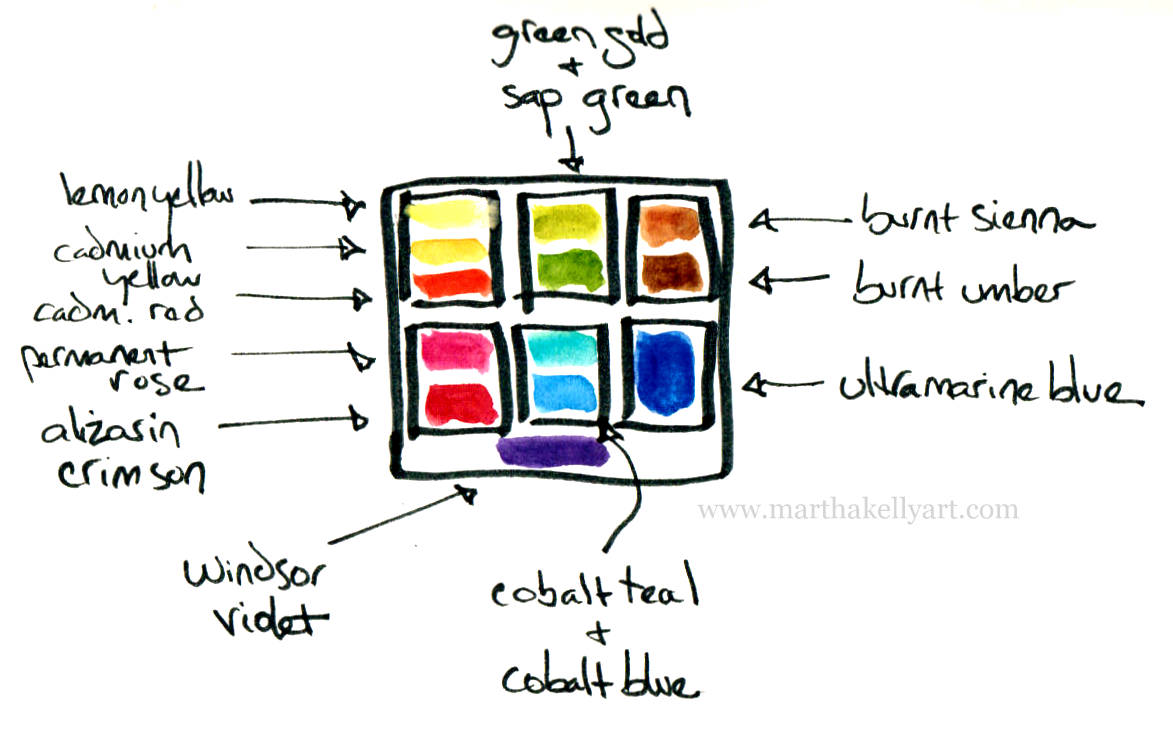 green gold
+
sap green
lemon yellow
cadmium
yellow
cadm. red
permanent
rose
alizarin
crimson
burnt sienna
burnt umber
ultramarine blue
www.marthakellyart.com
Windsor
violet
cobalt teal
+
cobalt blue